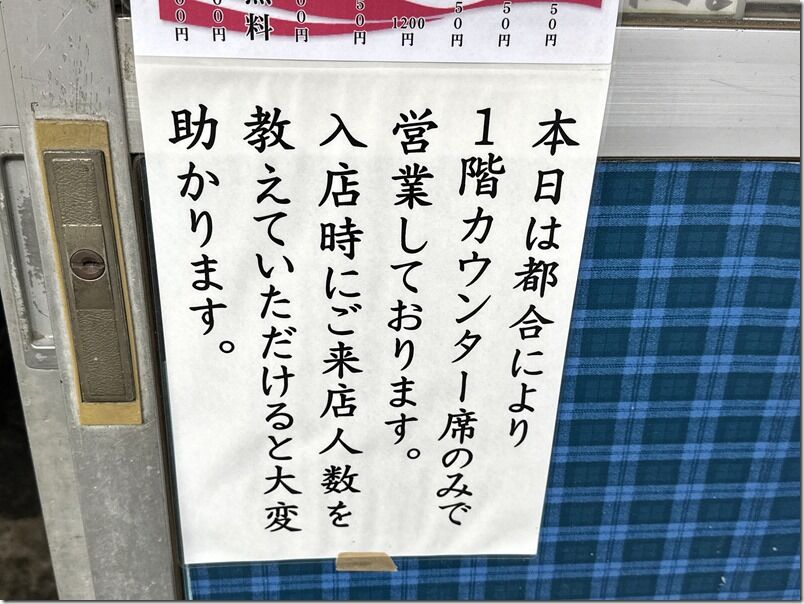 本日は都合により
1階カウンター席のみで
営業しております。
入店時にご来店人数を
教えていただけると大変
助かります。
50円
50円
50円
1200円
50円
00円
無料
00円
00円